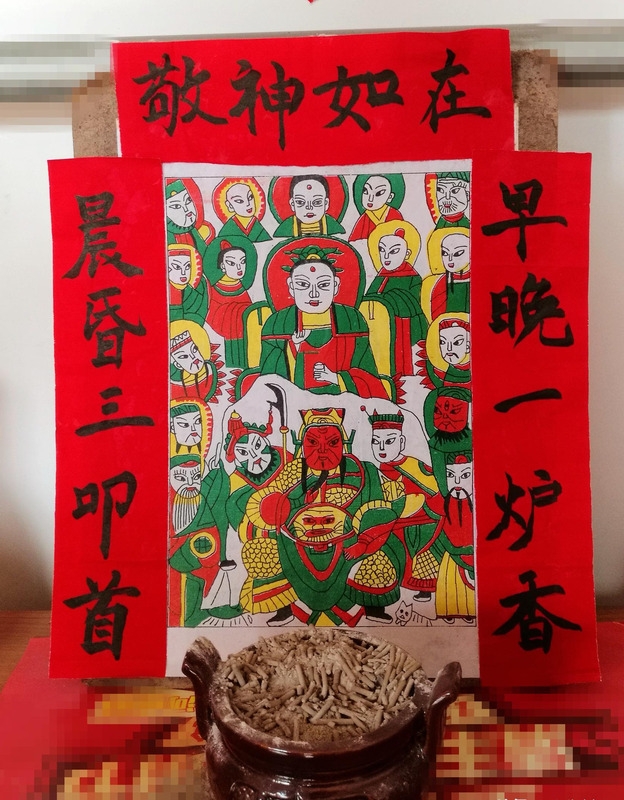 敬神如在
早晚一炉香
晨昏三叩首